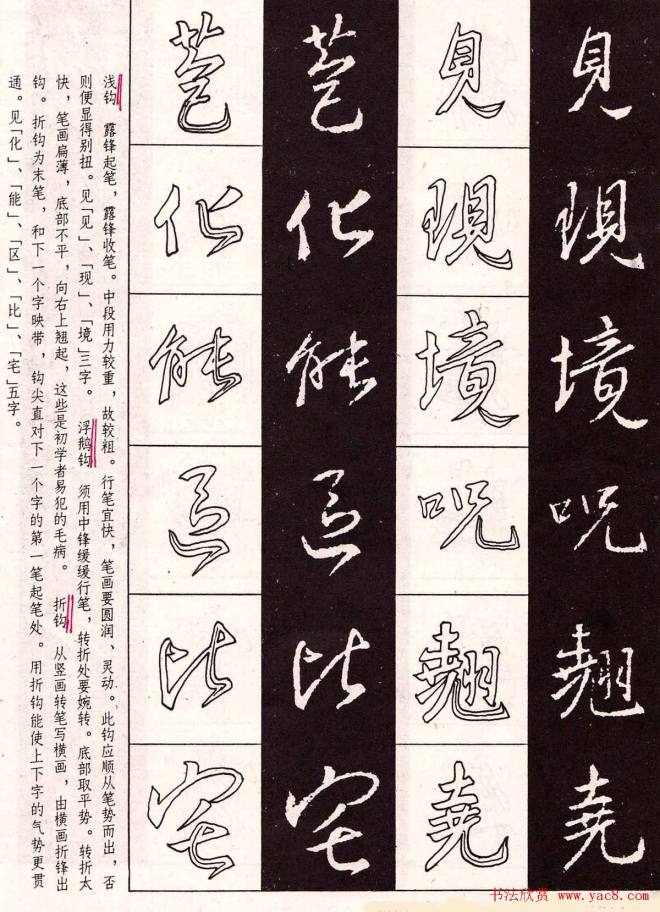 見現境呪翹堯
見現境呪翹堯
化能区比宅
化能区比宅
浅钩 露锋起笔，露锋收笔。中段用力较重，故较粗。行笔宜快，笔画要圆润、灵动。此钩应顺从笔势而出，否
则便显得别扭。见「见」、「现」、「境」三字。 浮鹅钩 须用中锋缓缓行笔，转折处要婉转。底部取平势。转折太
快，笔画扁薄，底部不平，向右上翘起，这些是初学者易犯的毛病。 折钩 从竖画转笔写横画，由横画折锋出
钩。折钩为末笔，和下一个字映带，钩尖直对下一个字的第一笔起笔处。用折钩能使上下字的气势更贯
通。见「化」、「能」、「区」、「比」、「宅」五字。
书法欣赏 www.yac8.com